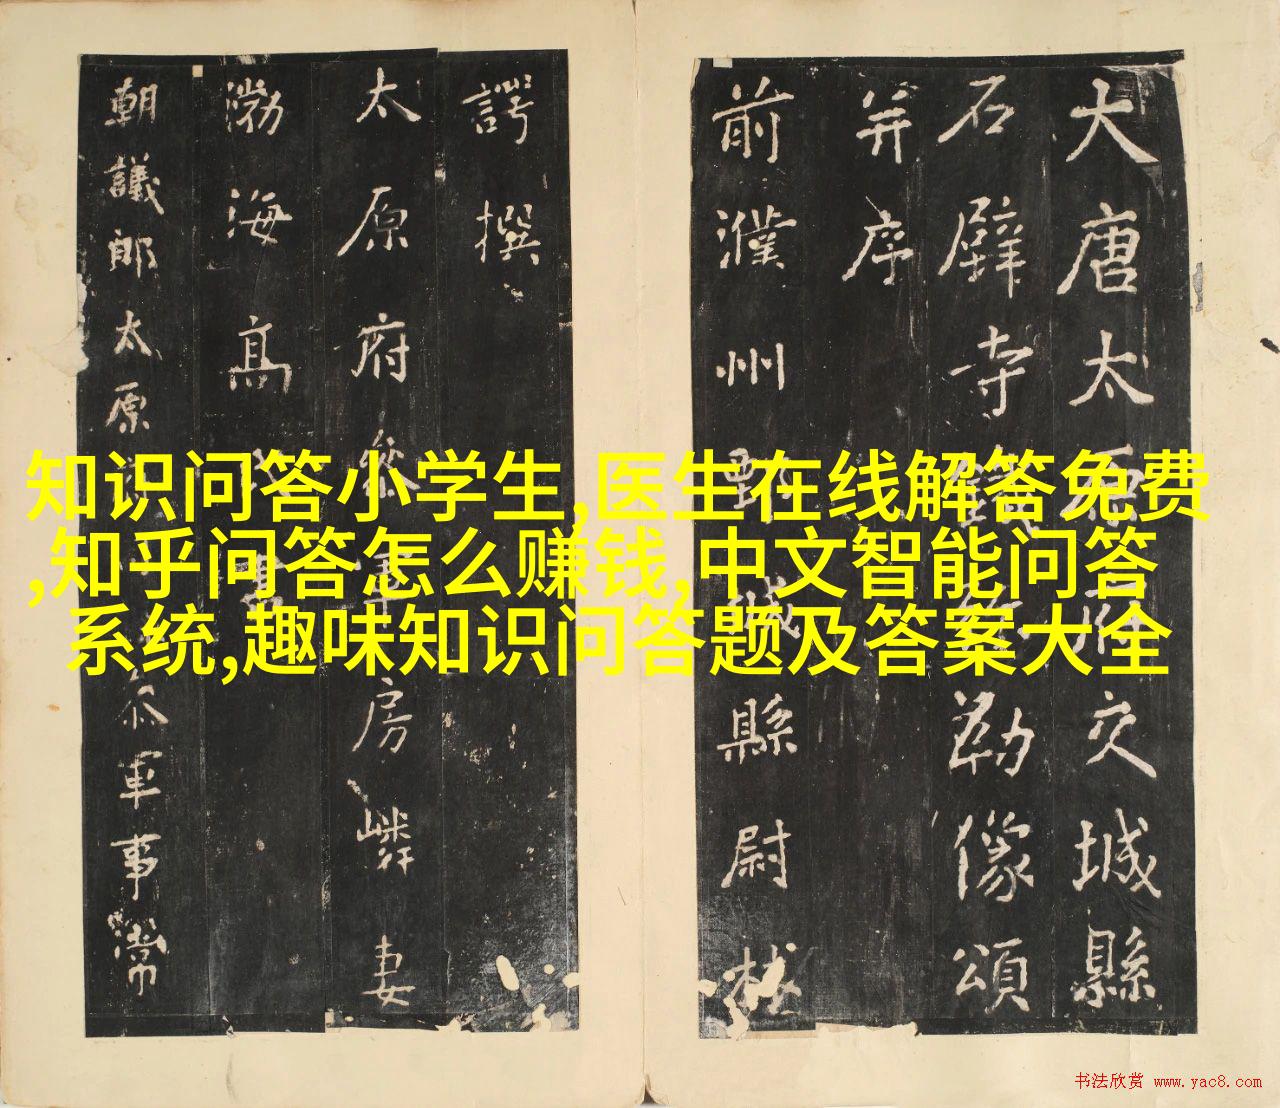 大唐太交城縣
石壁寺勒像頌
并序
前濮州鄄城縣尉林
諤撰
太原府參房嶙妻
渤海高
朝議郎太原參軍事常
知识问答小学生,医生在线解答免费
,知乎问答怎么赚钱,中文智能问答
系统,趣味知识问答题及答案大全
书法欣赏 www.yac8.com